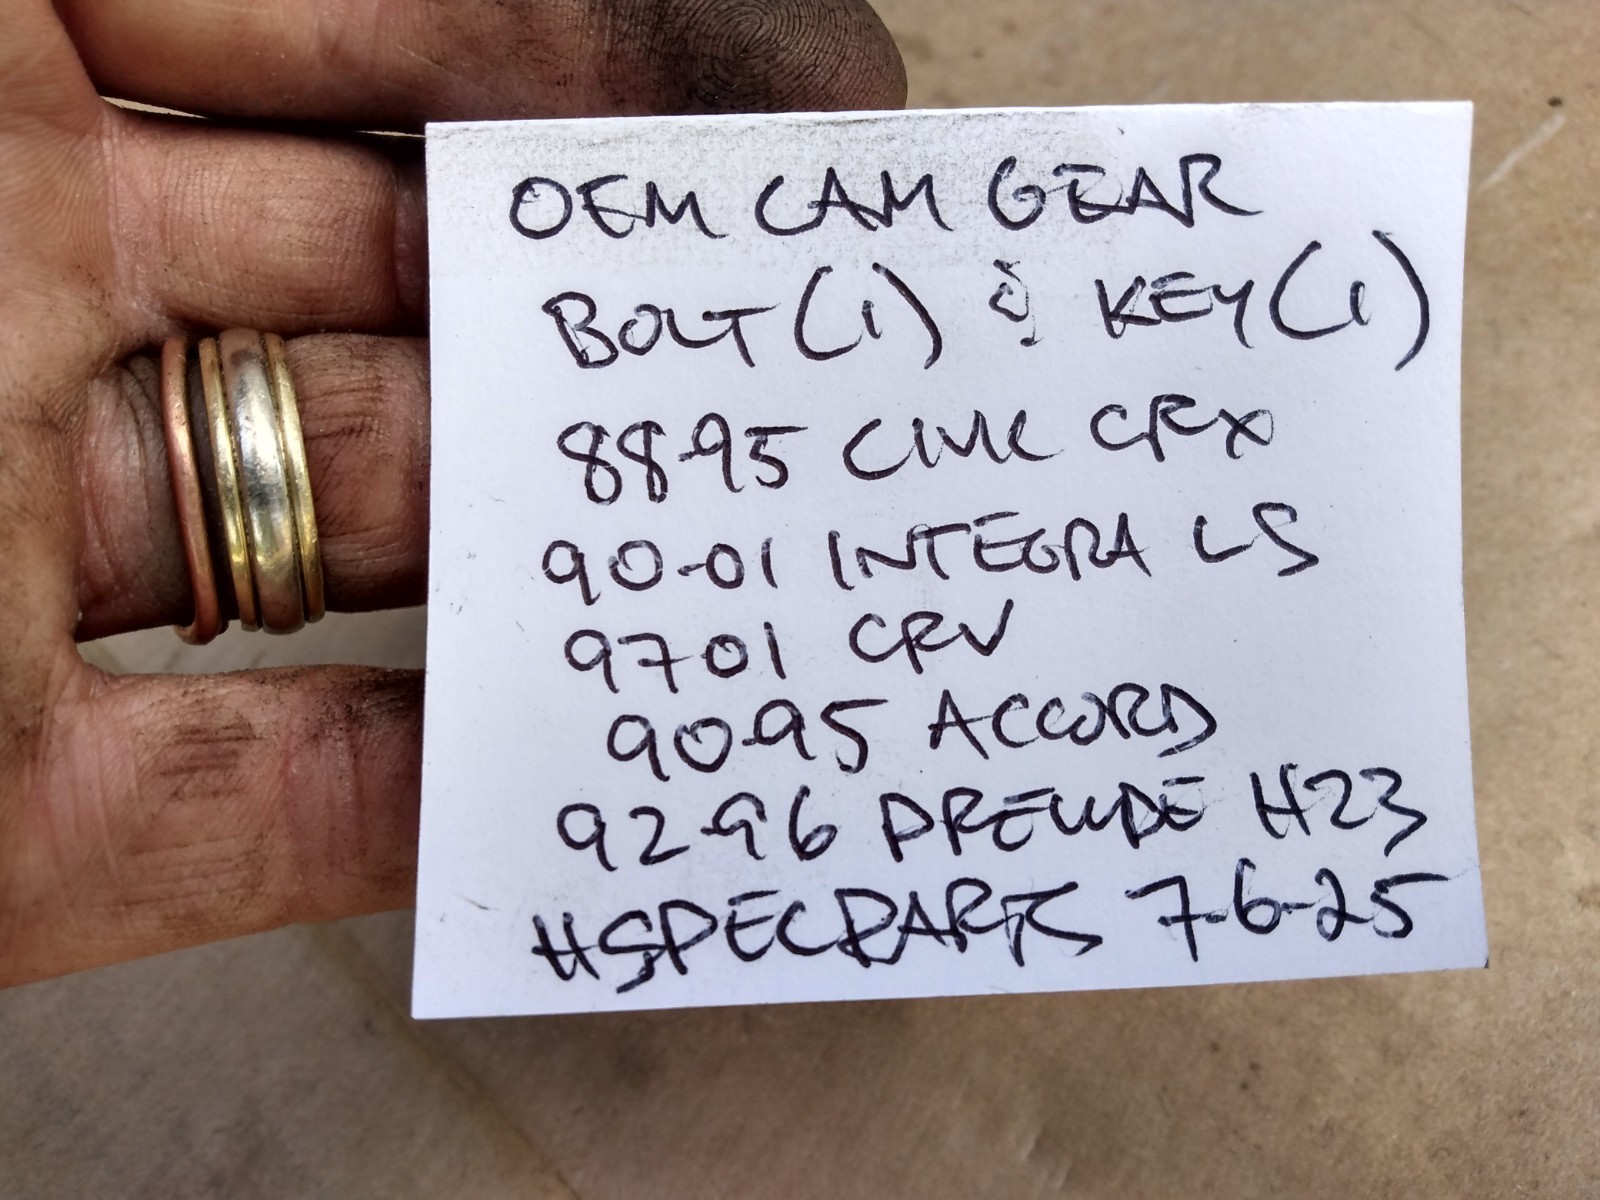 OEM CAM GEAR
BOLT (1) & KEY (1)
88-95 CIVIC CRX
90-01 INTEGRA LS
97 01 CRV
90-95 ACCORD
92-96 PRELUDE H23
HSPECPARTS 7-6-25